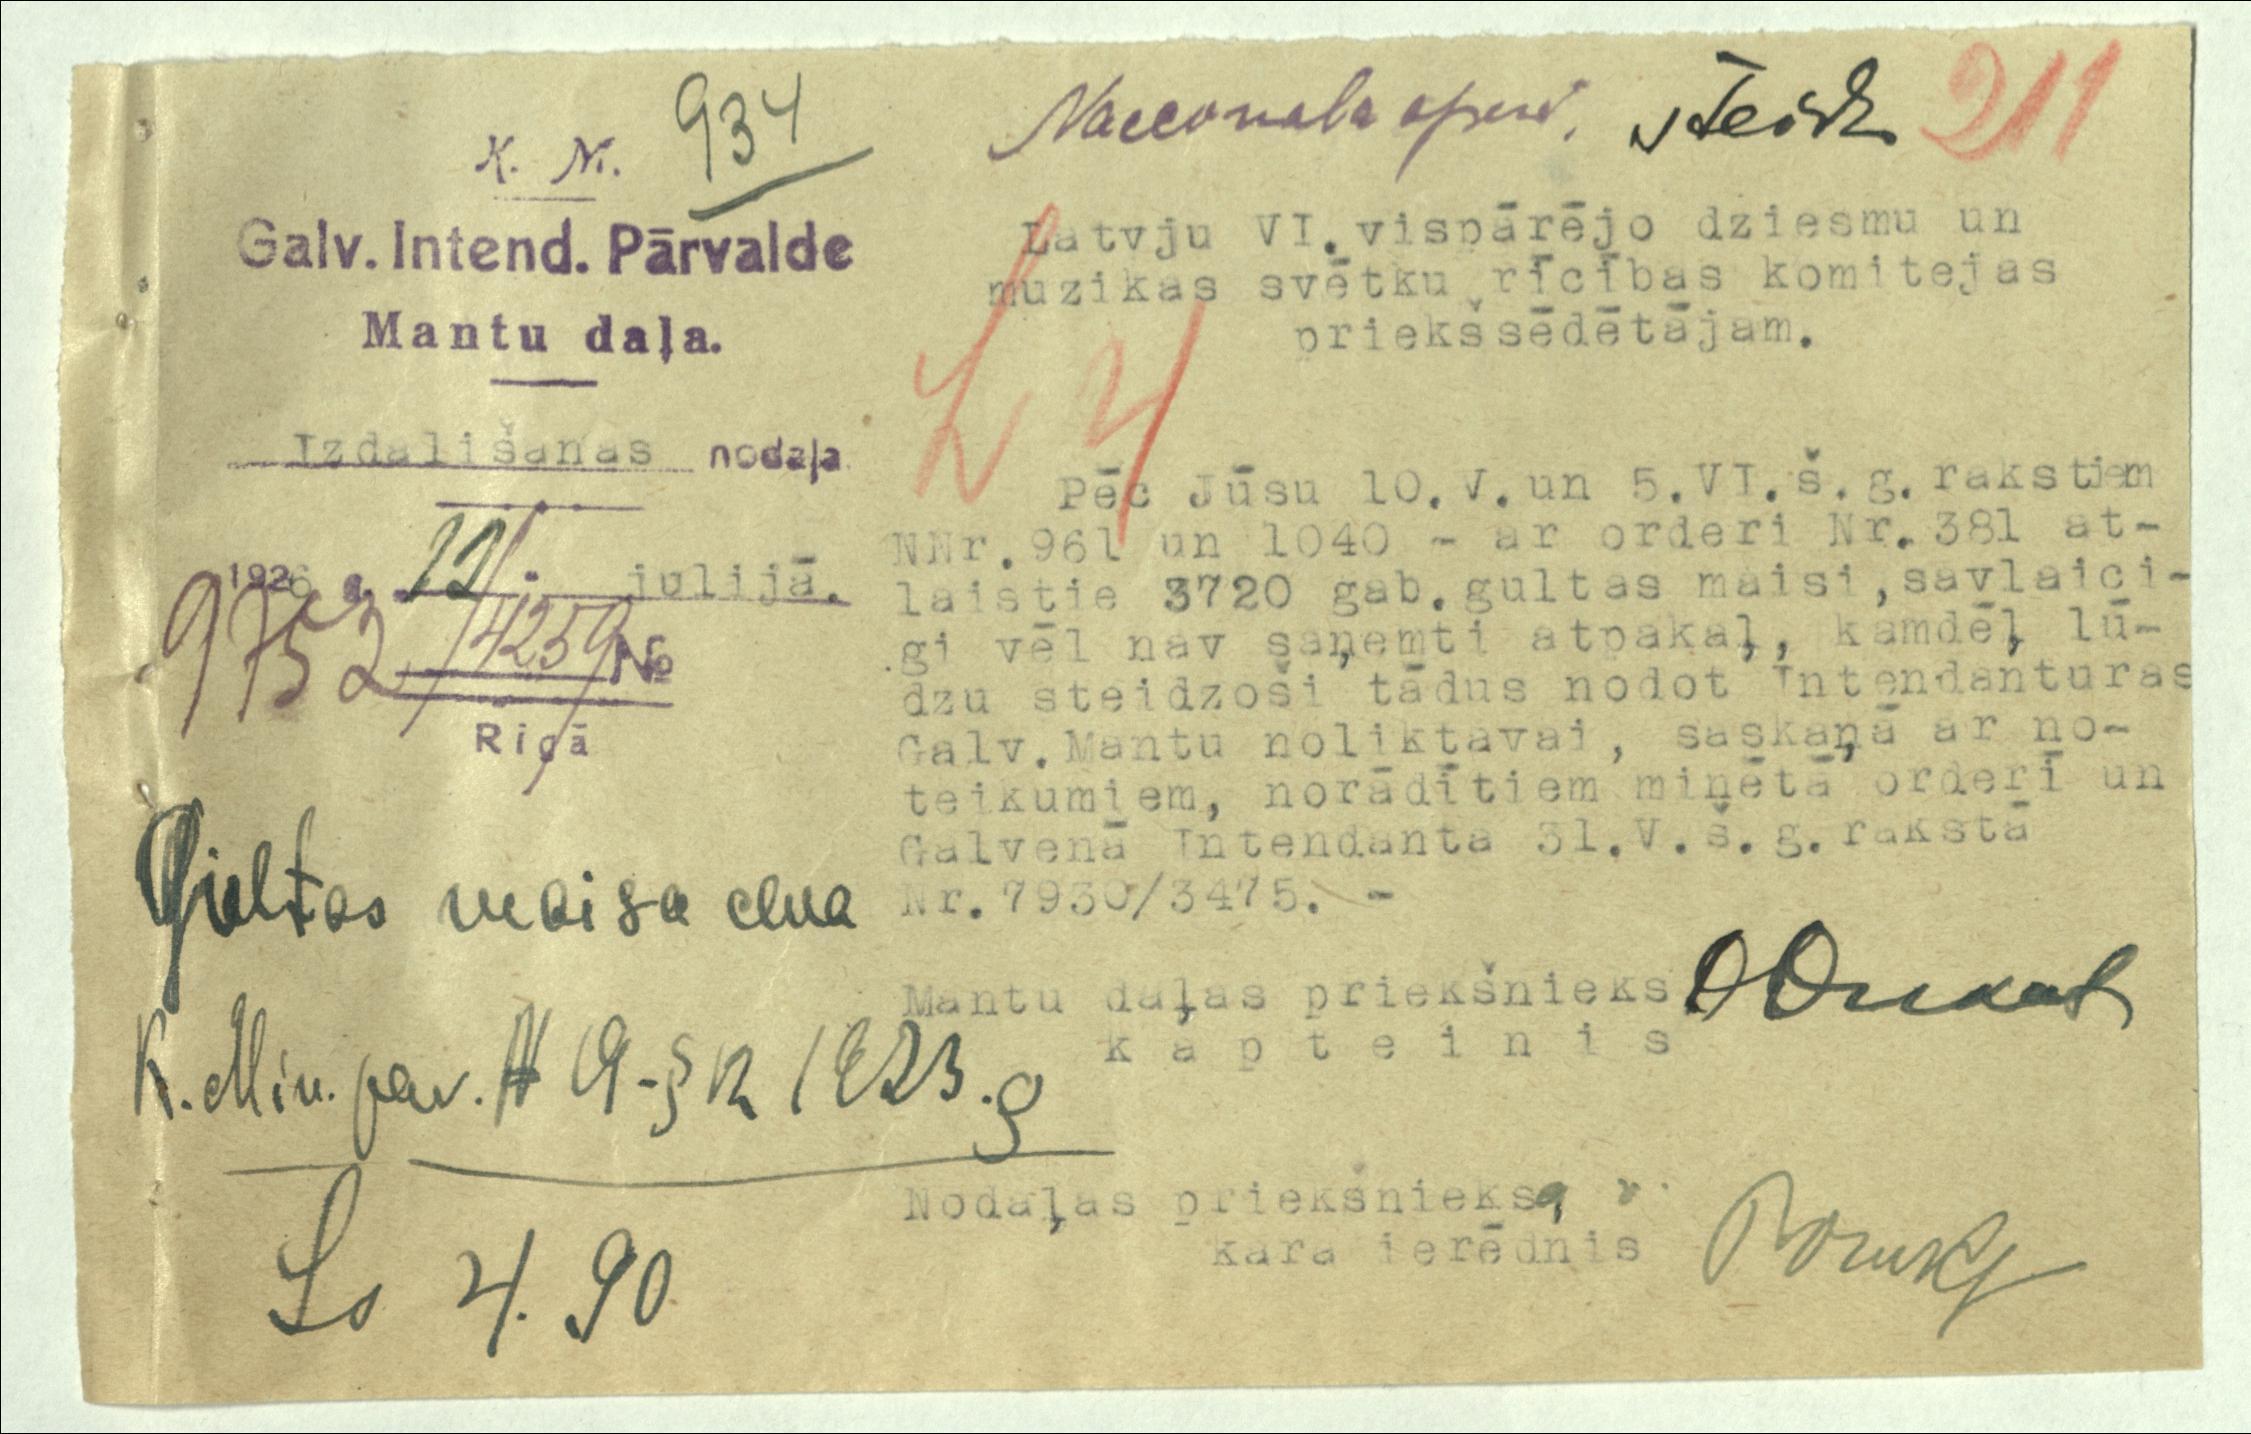 934
K. M.
Galv. Intend. Pārvalde
Mantu daļa.
Izdališanas nodaļa
1926 g. 12. julijā.
9752/4259 №
Rigā
211
Latvju VI. vispārējo dziesmu un
muzikas svētku rīcības komitejas
priekšsēdētājam.
Pēc Jūsu 10.V.un 5.VI.š.g.rakstiem
NNr.961 un 1040 - ar orderi Nr.381 at-
laistie 3720 gab.gultas maisi,savlaici-
gi vēl nav saņemti atpakaļ, kamdēļ lū-
dzu steidzoši tādus nodot Intendanturas
Galv.Mantu noliktavai, saskaņā ar no-
teikumiem, norādītiem minētā orderī un
Galvenā Intendanta 31.V.š.g.rakstā
Nr.7930/3475. -
Mantu daļas priekšnieks
kapteinis
Nodaļas priekšnieks
kara ierēdnis
Gultas maisa cena
K. Min. pav. № 19-§12 1923.g
Ls 4.90